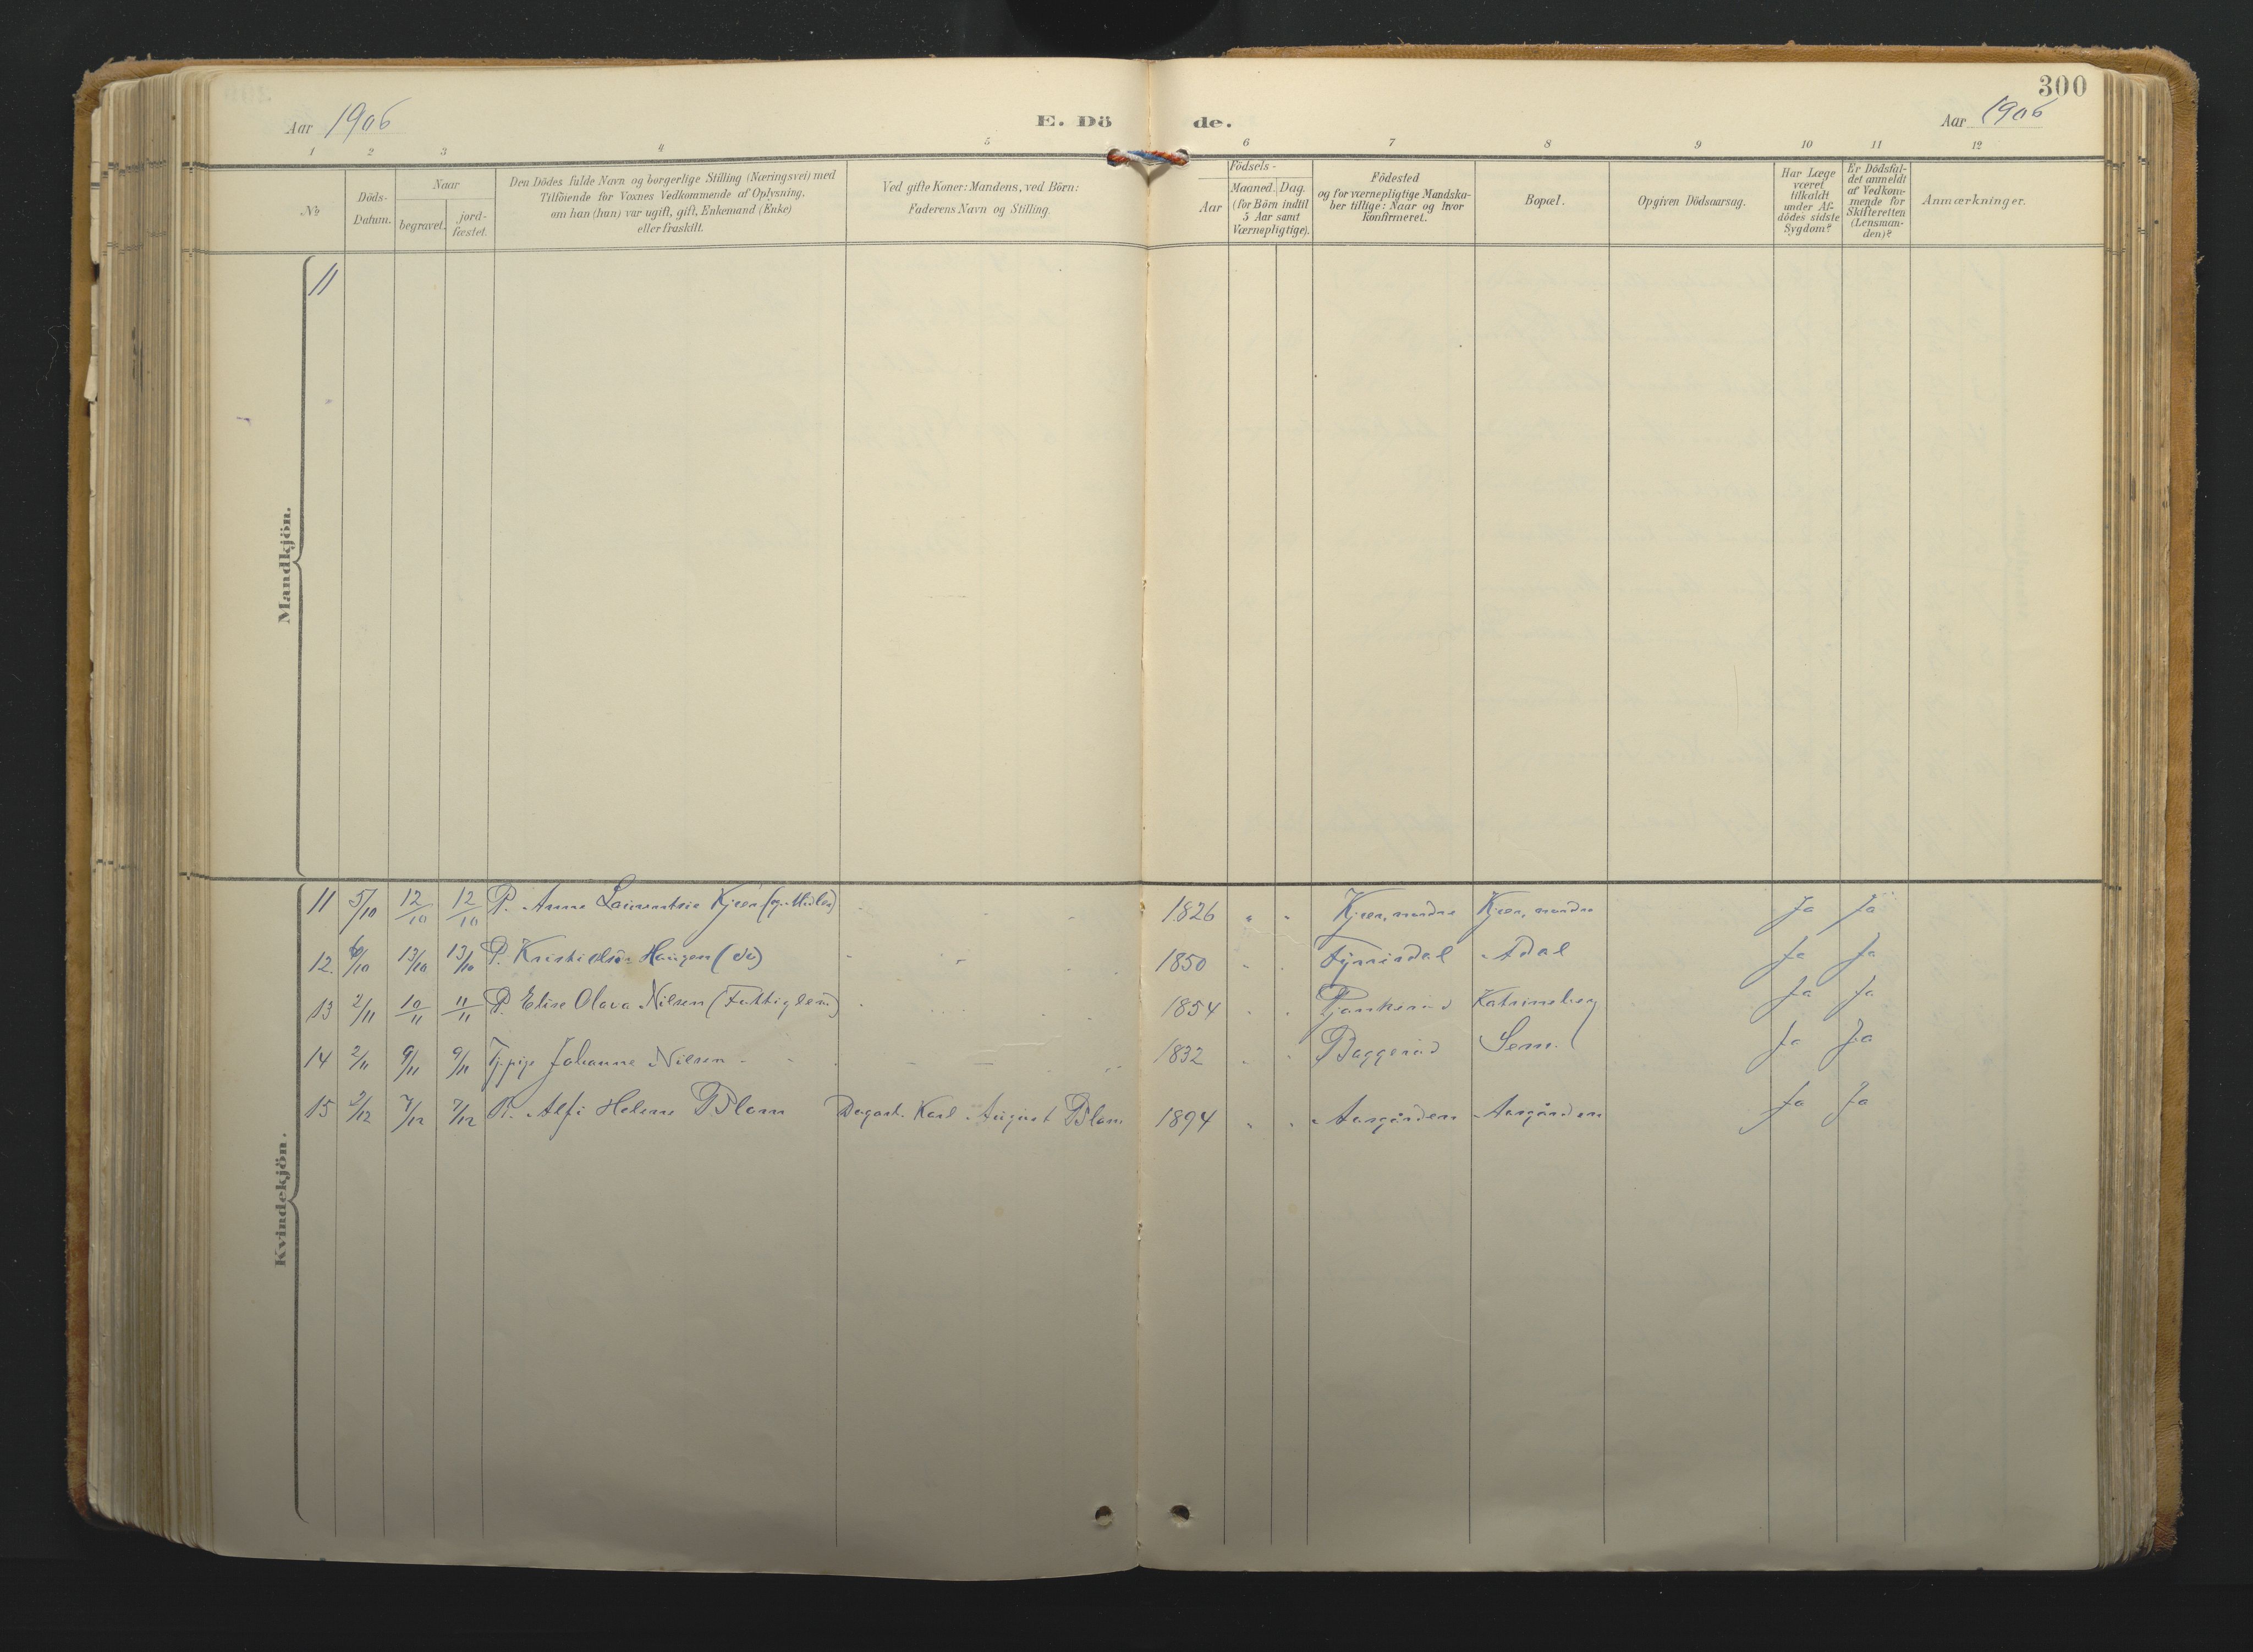 300
Aar 1906
E. Dö de.
Aar 1906
1 2 3 4 5 6 7 8 9 10 11 12
No
Döds-
Datum.
Naar
begravet.
jord-
fæstet.
Den Dödes fulde Navn og borgerlige Stilling (Næringsvei) med
Tilföiende for Voxnes Vedkommende af Oplysning,
om han (hun) var ugift, gift, Enkemand (Enke)
eller fraskilt.
Ved gifte Koner: Mandens, ved Börn:
Faderens Navn og Stilling.
Födsels-
Aar
Maaned. Dag.
(for Börn indtil
5 Aar samt
Værnepligtige).
Födested
og for værnepligtige Mandska-
ber tillige: Naar og hvor
konfirmeret.
Bopæl.
Opgiven Dödsaarsag.
Har Læge
været
tilkaldt
under Af-
dödes sidste
Sygdom?
Er Dödsfal-
det anmeldt
af Vedkom-
mende for
Skifteretten
(Lensman-
den)?
Anmærkninger.
Mandkjön.
11
Kvindekjön.
11 5/10 12/10 12/10 P. Anne Laurentsie Kjær 1826 " " Kjær, nordre Kjær, nordre Ja Ja
12. 6/10 13/10 13/10 P. Haugen - - 1850 " " Adal Ja Ja
13 2/11 10/11 11/11 P. Elise Olava Nilsen (Fattiglem) 1854 " " Katrineberg Ja Ja
14 2/11 9/11 9/11 Johanna Nilsen - - 1832 " " Baggerud Sem. Ja Ja
15 2/12 7/12 7/12 P. Alfi Helene Blom Dagarb. Karl August Blom 1894 " " Aasgården Aasgården Ja Ja